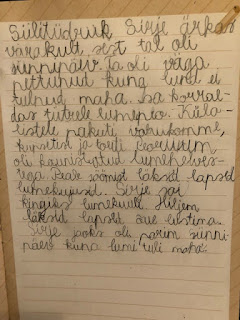 Siilitüdruk Sirje ärkas
varakult, sest tal oli
sünnipäev. Ta oli väga
pettunud kuna lund ei
tulnud maha. Ta korral-
das tutrele lumepeo. Küla-
listele pakuti vahukomme,
kringlit ja
oli kaunist-atud lumehelves-
tega. Peale söömist läksid lapsed
lumekujusid. Sirje sai
kingiks lumekuuli. Hiljem
läksid lapsed õue lustima.
Sirje jaoks oli parim sünni-
päev kuna lumi tuli maha.